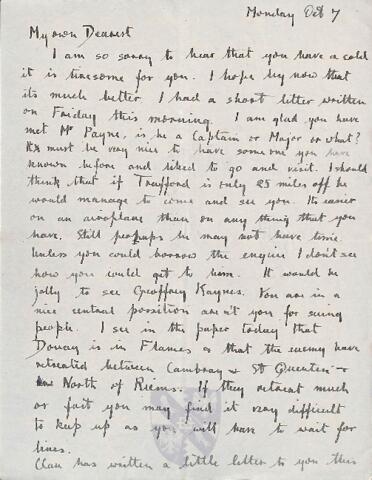 Monday Oct 7
My own Dearest
I am so sorry to hear that you have a cold
it is tiresome for you. I hope by now that
its much better. I had a short letter written
on Friday this morning. I am glad you have
met Mr Payne, is he a Captain or Major or what?
It must be very nice to have someone you have
known before and liked to go and visit. I should
think that if Trafford is only 25 miles off he
would manage to come and see you. Its easier
on an aeroplane than on any thing that you
have. Still perhaps he may not have time.
Unless you could borrow the engine I don't see
how you could get to him. It would be
jolly to see Geoffrey Keynes. You are in a
nice central possition aren't you for seeing
people. I see in the paper today that
Douay is in Flames & that the enemy have
retreated between Cambray & St Quenten &
North of Riems. If they retreat much
or fast you may find it very difficult
to keep up as you will have to wait for
lines.
Clare has written a little letter to you this